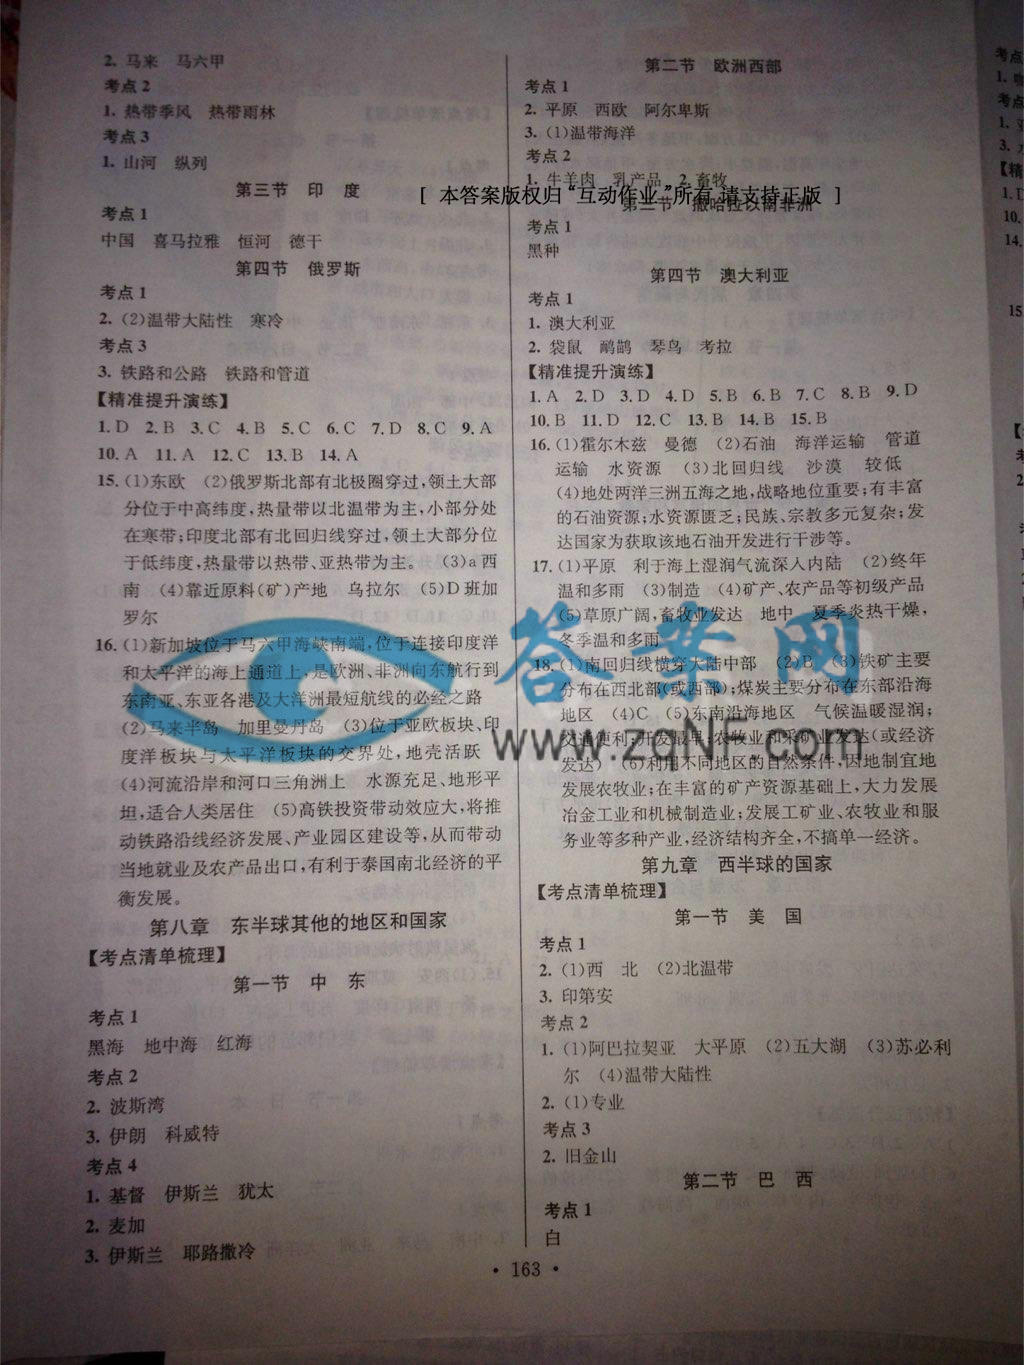 2. 马来　马六甲
考点 2
1. 热带季风　热带雨林
考点 3
1. 山河　纵列
第三节　印　度
考点 1
中国　喜马拉雅　恒河　德干
第四节　俄罗斯
考点 1
2. (2)温带大陆性　寒冷
考点 3
3. 铁路和公路　铁路和管道
【精准提升演练】
1. D　2. B　3. C　4. B　5. C　6. C　7. D　8. C　9. A
10. A　11. A　12. C　13. B　14. A
15. (1)东欧　(2)俄罗斯北部有北极圈穿过,领土大部
分位于中高纬度,热量带以北温带为主,小部分处
在寒带;印度北部有北回归线穿过,领土大部分位
于低纬度,热量带以热带、亚热带为主。　(3)a西
南　(4)靠近原料(矿)产地　乌拉尔　(5)D 班加
罗尔
16. (1)新加坡位于马六甲海峡南端,位于连接印度洋
和太平洋的海上通道上,是欧洲、非洲向东航行到
东南亚、东亚各港及大洋洲最短航线的必经之路
(2)马来半岛　加里曼丹岛　(3)位于亚欧板块、印
度洋板块与太平洋板块的交界处,地壳活跃
(4)河流沿岸和河口三角洲上　水源充足、地形平
坦,适合人类居住　(5)高铁投资带动效应大,将推
动铁路沿线经济发展、产业园区建设等,从而带动
当地就业及农产品出口,有利于泰国南北经济的平
衡发展。
第八章　东半球其他的地区和国家
【考点清单梳理】
第一节　中　东
考点 1
黑海　地中海　红海
考点 2
2. 波斯湾
3. 伊朗　科威特
考点 4
1. 基督　伊斯兰　犹太
2. 麦加
3. 伊斯兰　耶路撒冷
第二节　欧洲西部
考点 1
2. 平原　西欧　阿尔卑斯
3. (1)温带海洋
考点 2
1. 牛羊肉　乳产品　2. 畜牧
[ 本答案版权归“互动作业”所有,请支持正版 ]
第三节　撒哈拉以南非洲
考点 1
黑种
第四节　澳大利亚
考点 1
1. 澳大利亚
2. 袋鼠　鸸鹋　琴鸟　考拉
【精准提升演练】
1. A　2. D　3. D　4. D　5. B　6. B　7. C　8. B　9. D
10. B　11. D　12. C　13. B　14. B　15. B
16. (1)霍尔木兹　曼德　(2)石油　海洋运输　管道
运输　水资源　(3)北回归线　沙漠　较低
(4)地处两洋三洲五海之地,战略地位重要;有丰富
的石油资源;水资源匮乏;民族、宗教多元复杂;发
达国家为获取该地石油开发进行干涉等。
17. (1)平原　利于海上湿润气流深入内陆　(2)终年
温和多雨　(3)制造　(4)矿产、农产品等初级产品
(5)草原广阔,畜牧业发达　地中　夏季炎热干燥,
冬季温和多雨
18. (1)南回归线横穿大陆中部　(2)B　(3)铁矿主要
分布在西北部(或西部);煤炭主要分布在东部沿海
地区　(4)C　(5)东南沿海地区　气候温暖湿润;
交通便利;开发最早;农牧业和采矿业发达(或经济
发达)　(6)利用不同地区的自然条件,因地制宜地
发展农牧业;在丰富的矿产资源基础上,大力发展
冶金工业和机械制造业;发展工矿业、农牧业和服
务业等多种产业,经济结构齐全,不搞单一经济。
第九章　西半球的国家
【考点清单梳理】
第一节　美　国
考点 1
2. (1)西　北　(2)北温带
3. 印第安
考点 2
1. (1)阿巴拉契亚　大平原　(2)五大湖　(3)苏必利
尔　(4)温带大陆性
2. (1)专业
考点 3
2. 旧金山
第二节　巴　西
考点 1
白
答案网
www.zqNF.com
• 163 •